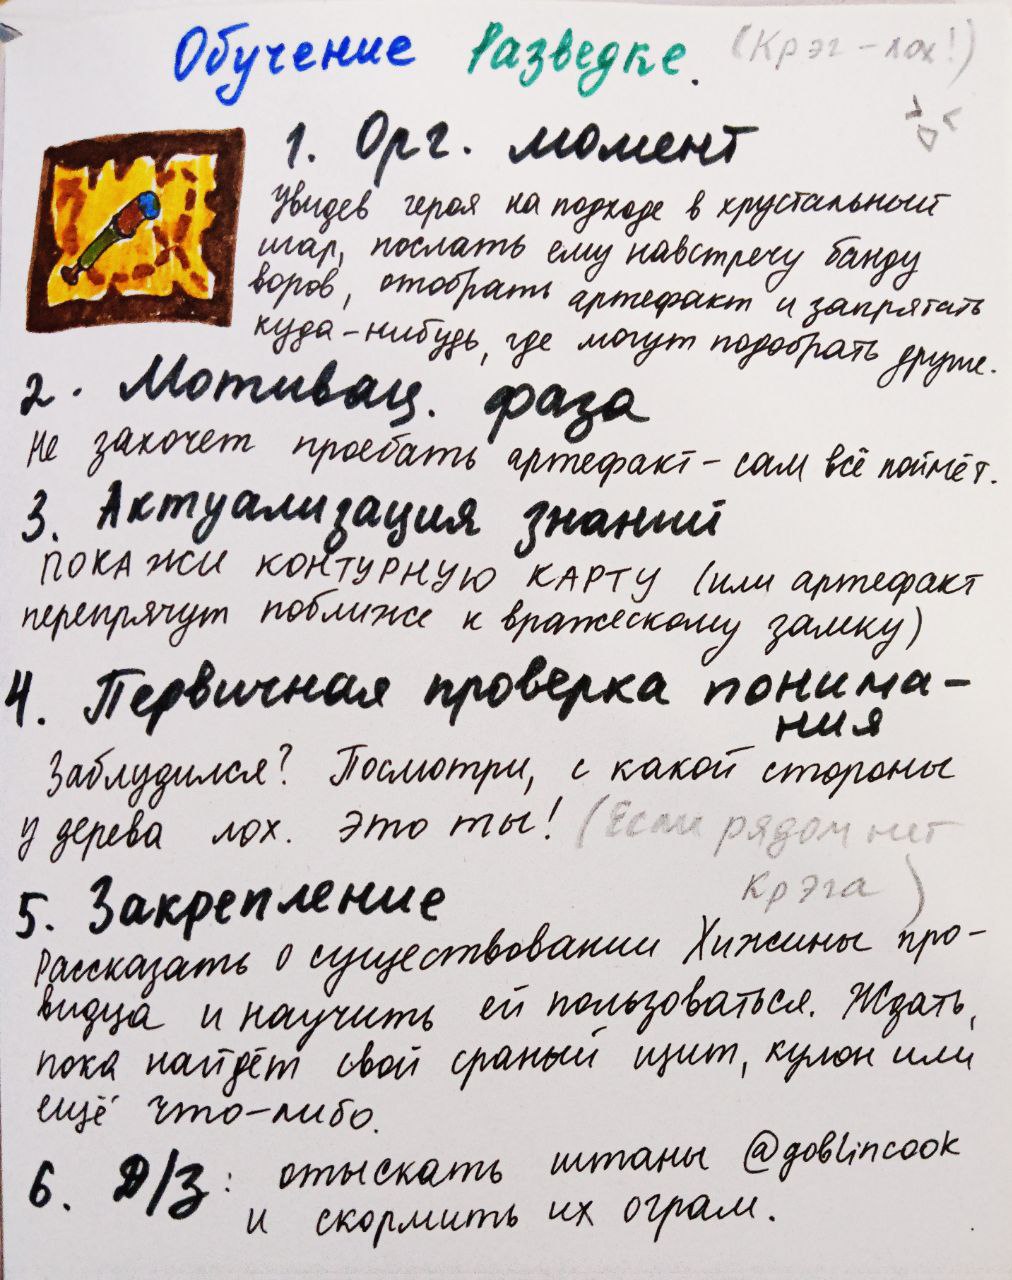 Обучение Разведке. (Крэг - лох!)
1. Орг. момент
Увидев героя на подходе в хрустальный
шар, послать ему навстречу банду
воров, отобрать артефакт и запрятать
куда-нибудь, где могут подобрать другие.
2. Мотивац. фаза
Не захочет проебать артефакт - сам всё поймёт.
3. Актуализация знаний
ПОКАЖИ КОНТУРНУЮ КАРТУ (или артефакт
перепрячут поближе к вражескому замку)
4. Первичная проверка понима-
ния
Заблудился? Посмотри, с какой стороны
у дерева лох. Это ты! (Если рядом нет
Крэга)
5. Закрепление
Рассказать о существовании Хижины про-
видца и научить ей пользоваться. Ждать,
пока найдёт свой сраный щит, кулон или
ещё что-либо.
6. Д/З: отыскать штаны @goblincook
и скормить их ограм.